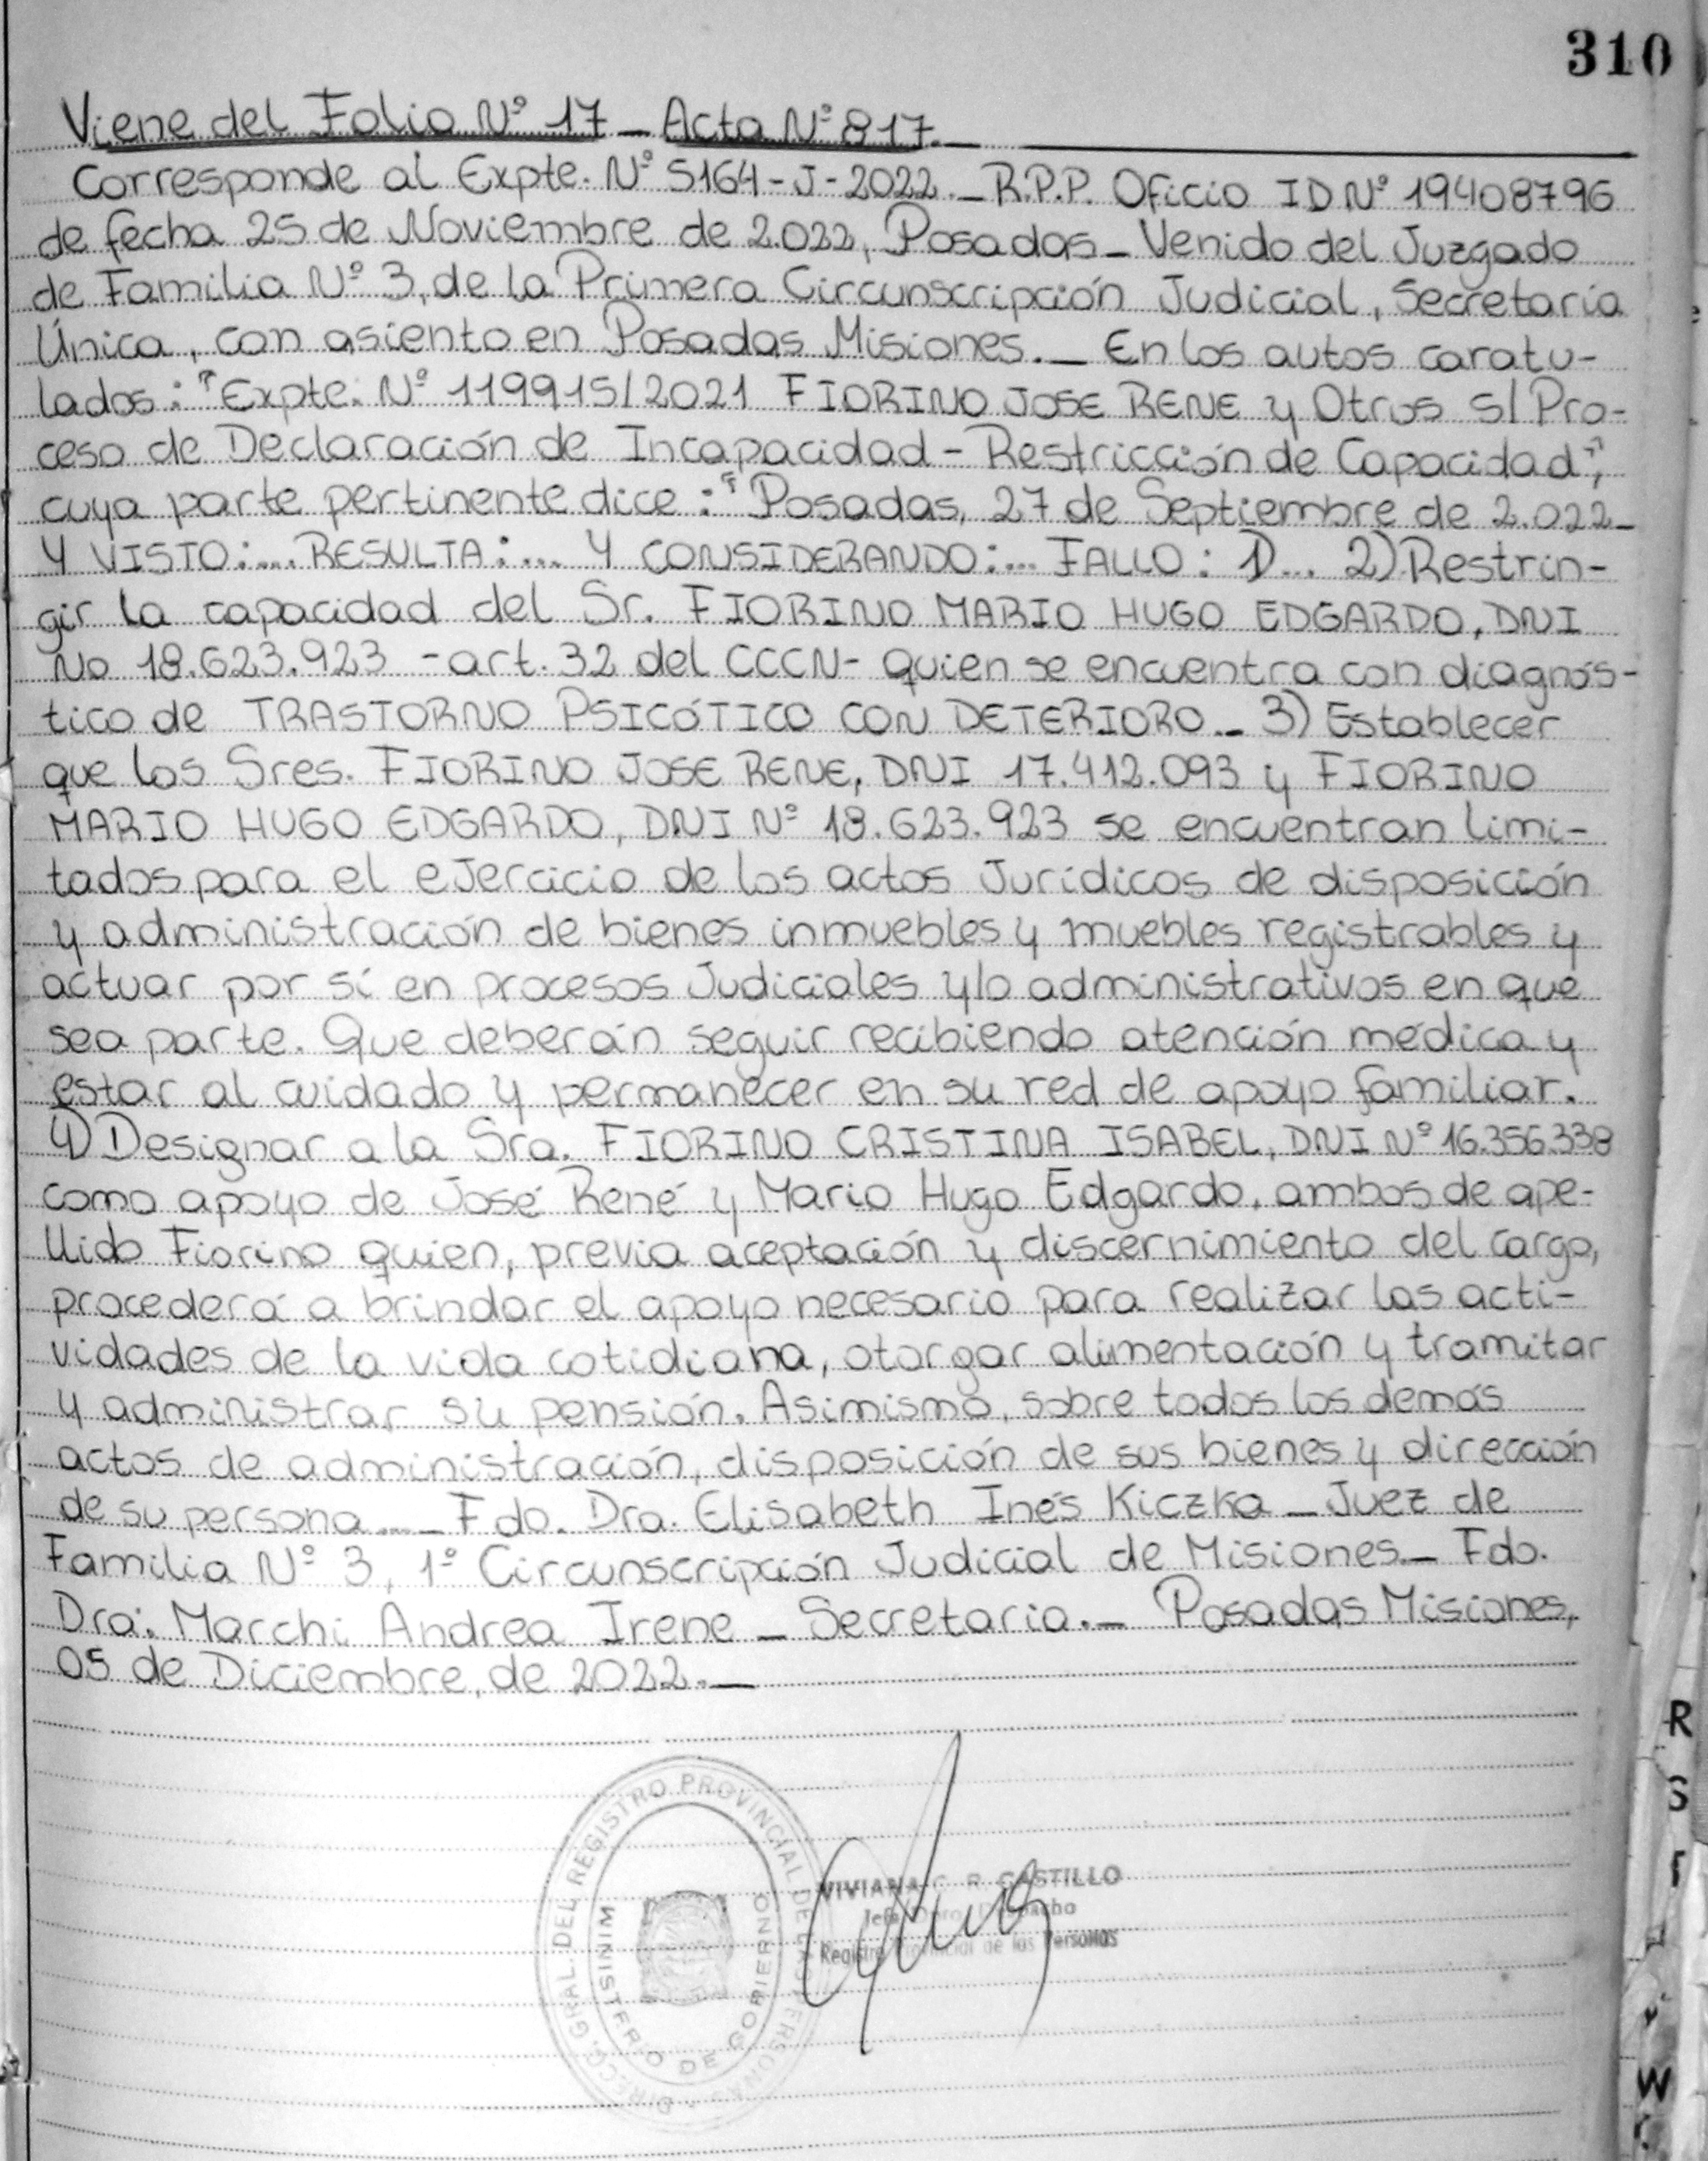 310
Viene del Folio Nº 17 _ Acta Nº 817._
Corresponde al Expte. Nº 5164-J-2022._ R.P.P. Oficio ID Nº 19408796
de fecha 25 de Noviembre de 2.022, Posadas _ Venido del Juzgado
de Familia Nº 3, de la Primera Circunscripción Judicial, Secretaría
Única, con asiento en Posadas Misiones._ En los autos caratu-
lados: "Expte. Nº 119915/2021 FIORINO JOSE RENE y Otros S/ Pro-
ceso de Declaración de Incapacidad - Restricción de Capacidad",
cuya parte pertinente dice: "Posadas, 27 de Septiembre de 2.022_
Y VISTO:... RESULTA:... Y CONSIDERANDO:... FALLO: 1)... 2) Restrin-
gir la capacidad del Sr. FIORINO MARIO HUGO EDGARDO, DNI
No 18.623.923 - art. 32 del CCCN - quien se encuentra con diagnós-
tico de TRASTORNO PSICÓTICO CON DETERIORO._ 3) Establecer
que los Sres. FIORINO JOSE RENE, DNI 17.412.093 y FIORINO
MARIO HUGO EDGARDO, DNI Nº 18.623.923 se encuentran limi-
tados para el eJercicio de los actos Jurídicos de disposición
y administración de bienes inmuebles y muebles registrables y
actuar por sí en procesos Judiciales y/o administrativos en que
sea parte. Que deberán seguir recibiendo atención médica y
estar al cuidado y permanecer en su red de apoyo familiar.
4) Designar a la Sra. FIORINO CRISTINA ISABEL, DNI Nº 16.356.338
como apoyo de José René y Mario Hugo Edgardo, ambos de ape-
llido Fiorino quien, previa aceptación y discernimiento del cargo,
procederá a brindar el apoyo necesario para realizar las acti-
vidades de la vida cotidiana, otorgar alimentación y tramitar
y administrar su pensión. Asimismo, sobre todos los demás
actos de administración, disposición de sus bienes y dirección
de su persona...._ Fdo. Dra. Elisabeth Inés Kiczka _ Juez de
Familia Nº 3, 1º Circunscripción Judicial de Misiones._ Fdo.
Dra: Marchi Andrea Irene _ Secretaria._ Posadas Misiones,
05 de Diciembre, de 2022._
DIRECC. GRAL. DEL REGISTRO PROVINCIAL DE LAS PERSONAS
MINISTERIO DE GOBIERNO
VIVIANA C. R. CASTILLO
Jefe Dpto. Despacho
Registro Provincial de las Personas
R
S
W